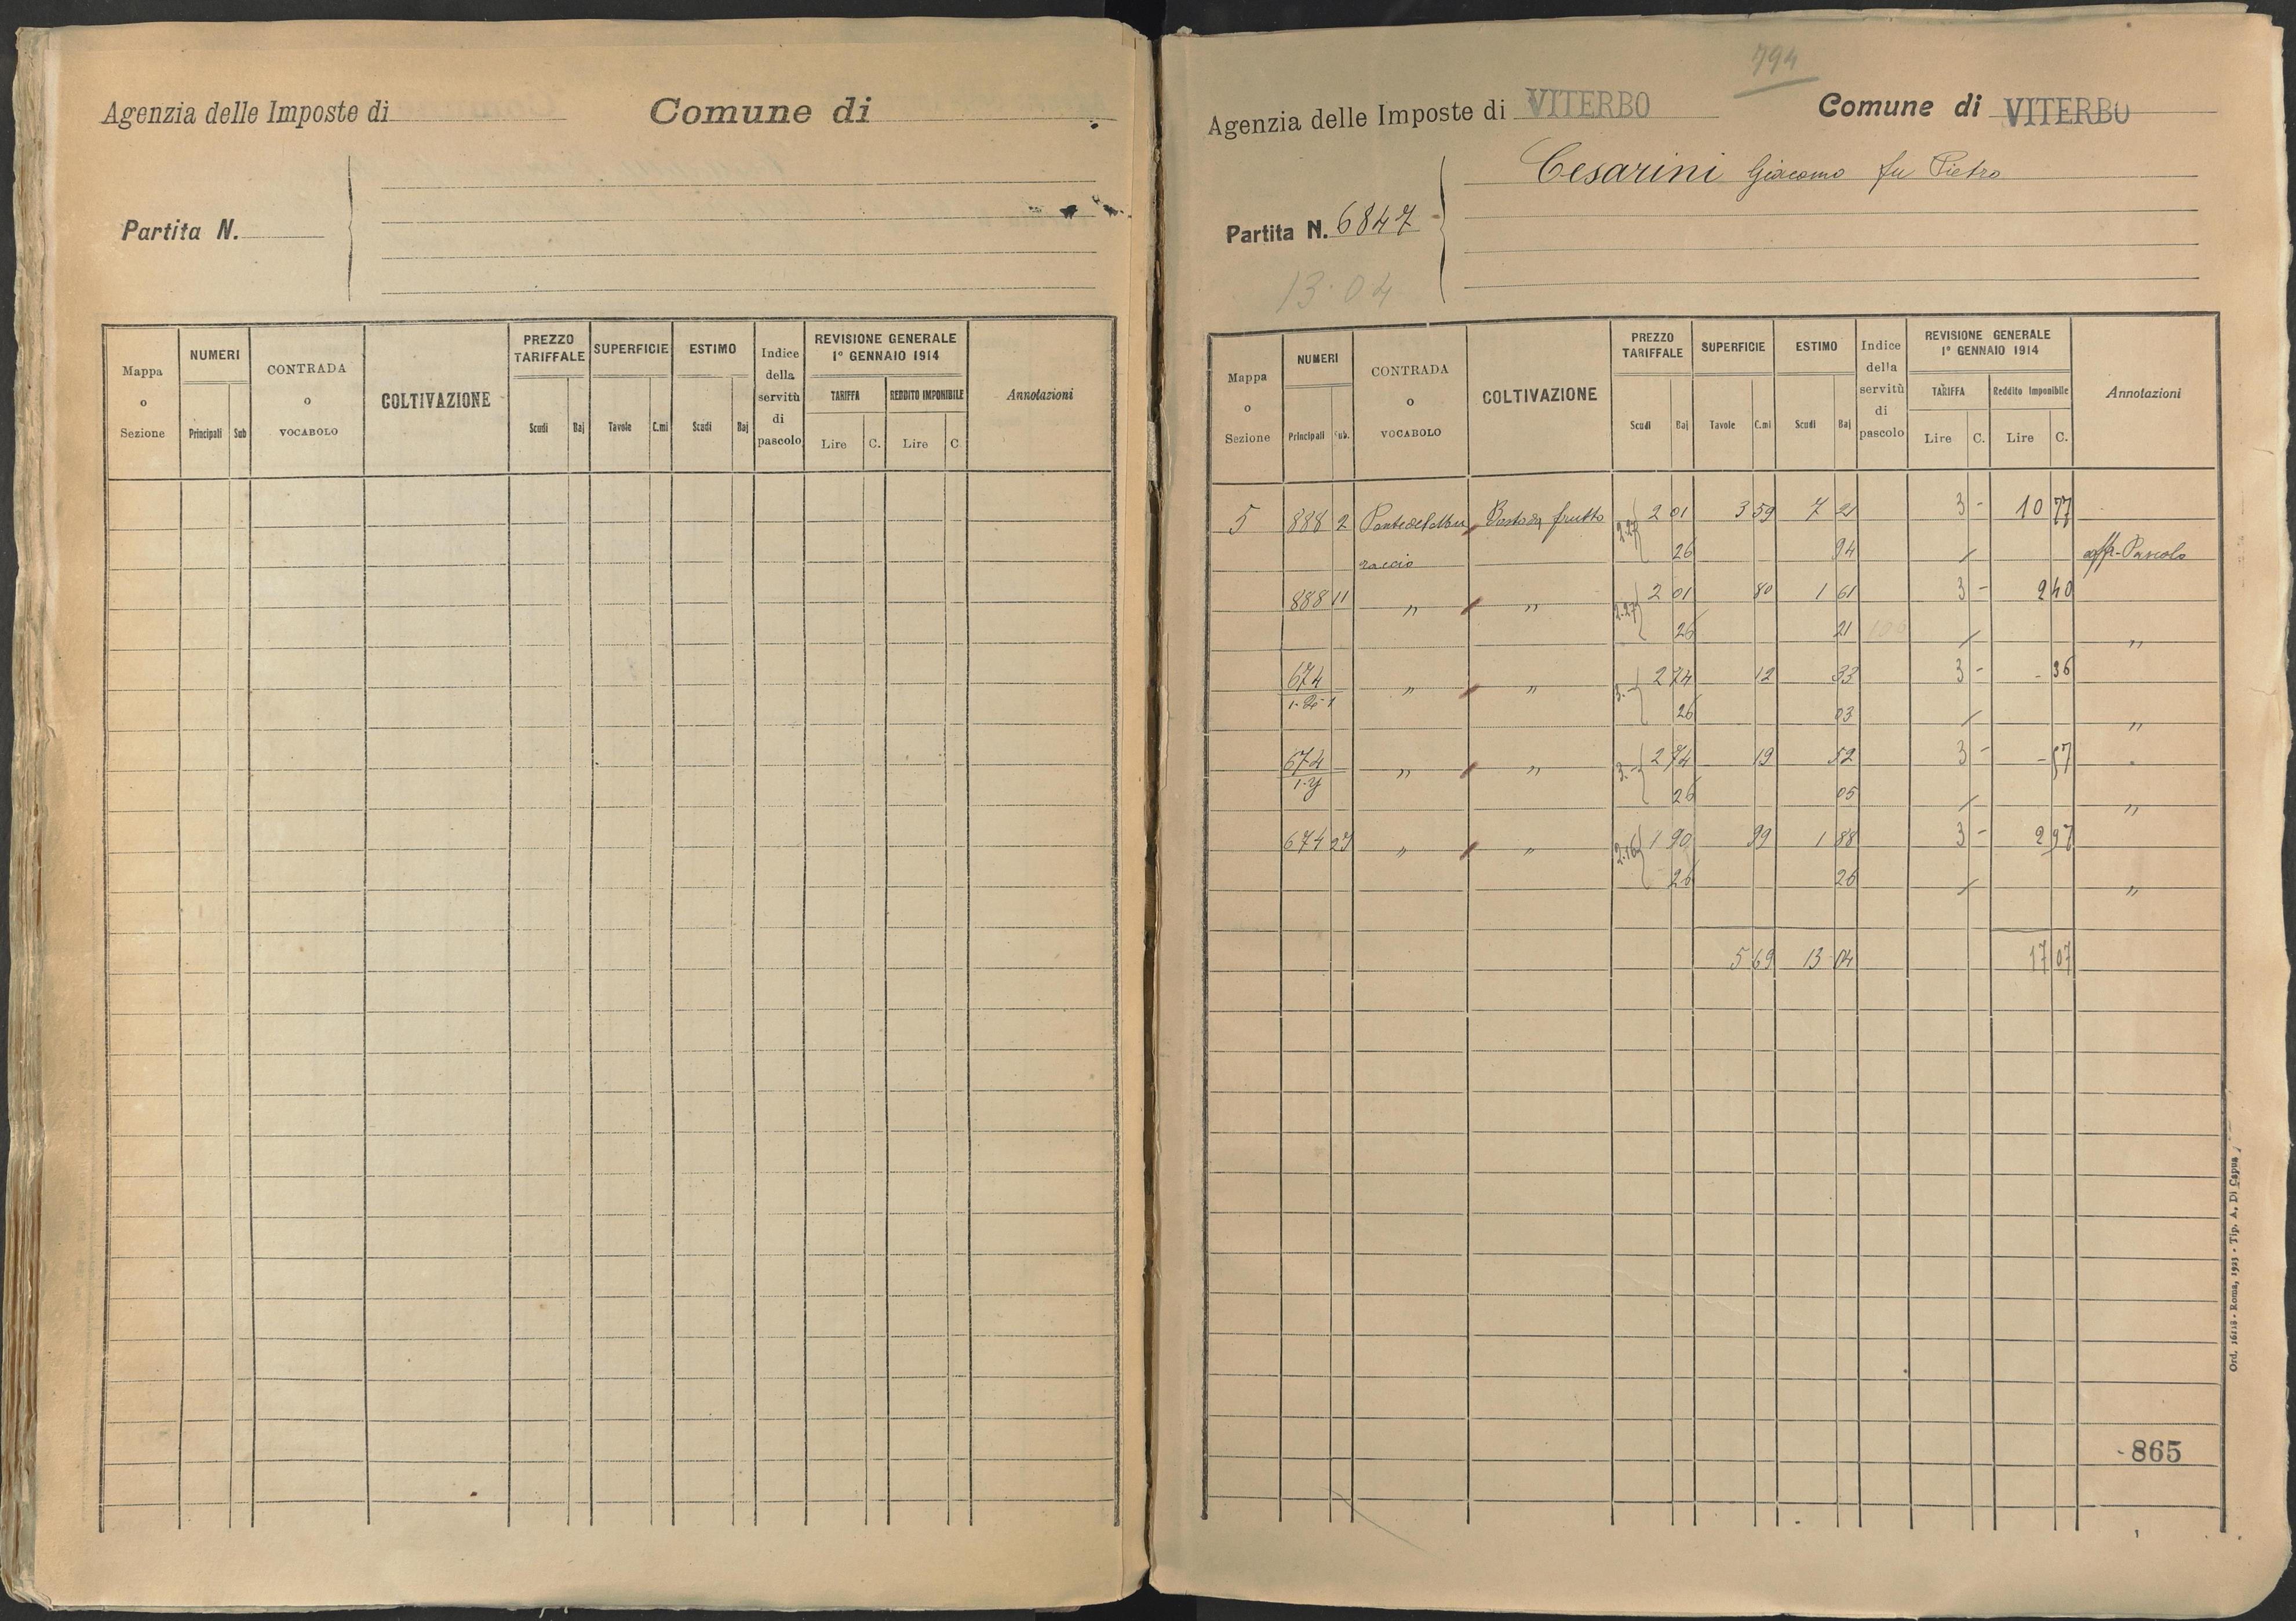 Agenzia delle Imposte di
Comune di
Partita N.
Mappa o Sezione
NUMERI
Principali Sub
CONTRADA o VOCABOLO
COLTIVAZIONE
PREZZO TARIFFALE
Scudi Baj
SUPERFICIE
Tavole C.mi
ESTIMO
Scudi Baj
Indice della servitù di pascolo
REVISIONE GENERALE
1° GENNAIO 1914
TARIFFA REDDITO IMPONIBILE
Lire C. Lire C.
Annotazioni
794
Agenzia delle Imposte di VITERBO
Comune di VITERBO
Cesarini Giacomo fu Pietro
Partita N. 6847
13.04
Mappa o Sezione
NUMERI
Principali Sub.
CONTRADA o VOCABOLO
COLTIVAZIONE
PREZZO TARIFFALE
Scudi Baj
SUPERFICIE
Tavole C.mi
ESTIMO
Scudi Baj
Indice della servitù di pascolo
REVISIONE GENERALE
1° GENNAIO 1914
TARIFFA Reddito Imponibile
Lire C. Lire C.
Annotazioni
5 888 2 frutto 2.27 2 01 3 59 7 21 3 - 10 77
26 94 Pascolo
888 11 " " 2.27 2 01 80 1 61 3 - 2 40
26 21 "
674 " " 3.- 2 74 12 33 3 - - 36
26 03 "
674 " " 3.- 2 74 19 52 3 - - 57
1.y
26 05 "
674 27 " " 2.16 1 90 99 1 88 3 - 2 97
26 26 "
5 69 13 04 17 07
865
Ord. 16118 - Roma, 1923 - Tip. A. Di Capua